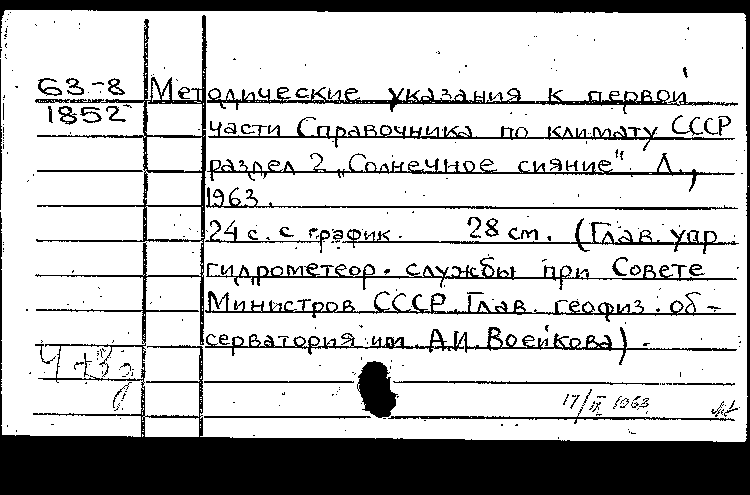 63-8 Методические указания к первой
1852 части Справочника по климату СССР
раздел 2 „Солнечное сияние" Л.,
1963.
24 с. с график. 28 см. (Глав. упр
гидрометеор. службы при Совете
Министров СССР. Глав. геофиз. об-
серватория им. А.И. Воейкова).
17/IX 1963